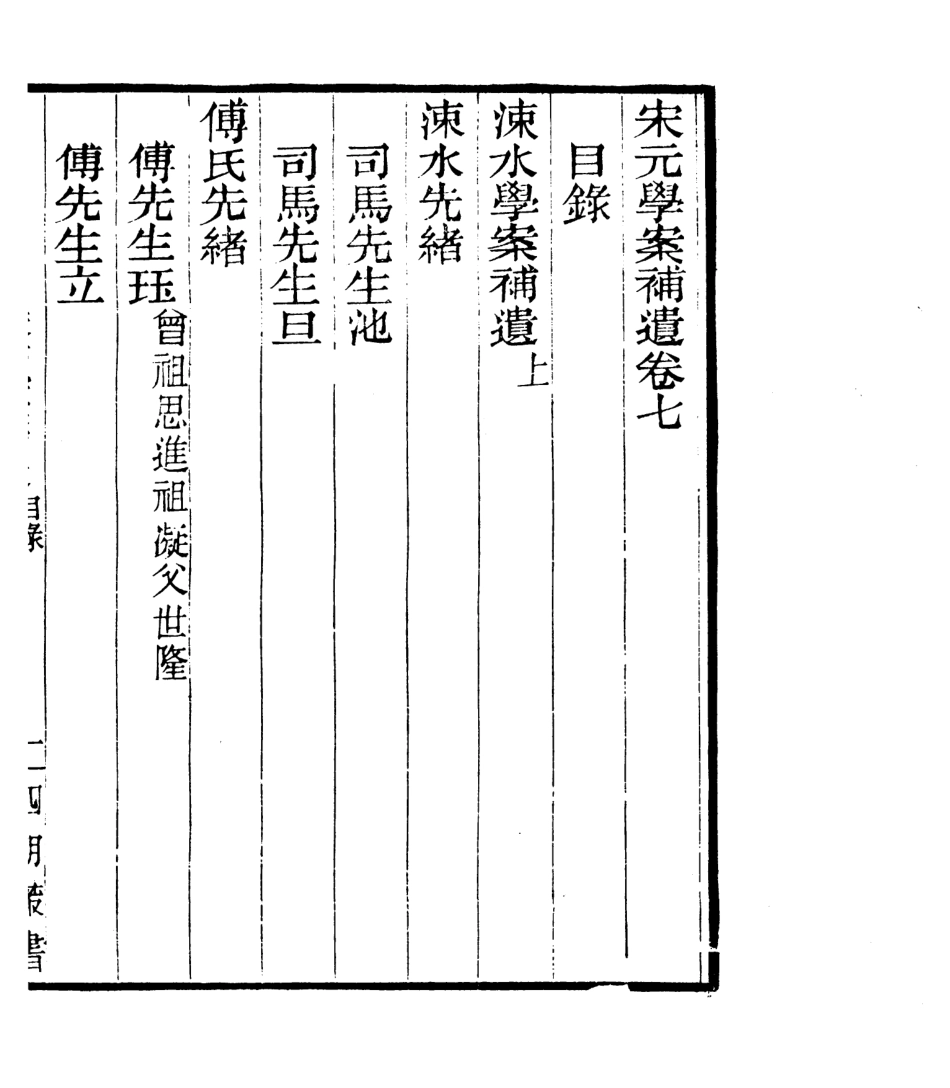 宋元學案補遺卷七
目錄
涑水學案補遺上
涑水先緒
司馬先生池
司馬先生旦
傅氏先緒
傅先生珏曾祖思進祖凝父世隆
傅先生立
目錄
一四明叢書